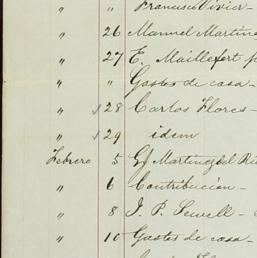 " " Francisco Vivier -
" 26 Manuel Martine
" 27 E. Maillefert p
" " Gastos de casa -
" 28 Carlos Flores -
" 29 idem
Febrero 5 Martinez del Ri
" 6 Contribucion -
" 8 J. P. Sewell -
" 10 Gastos de casa -